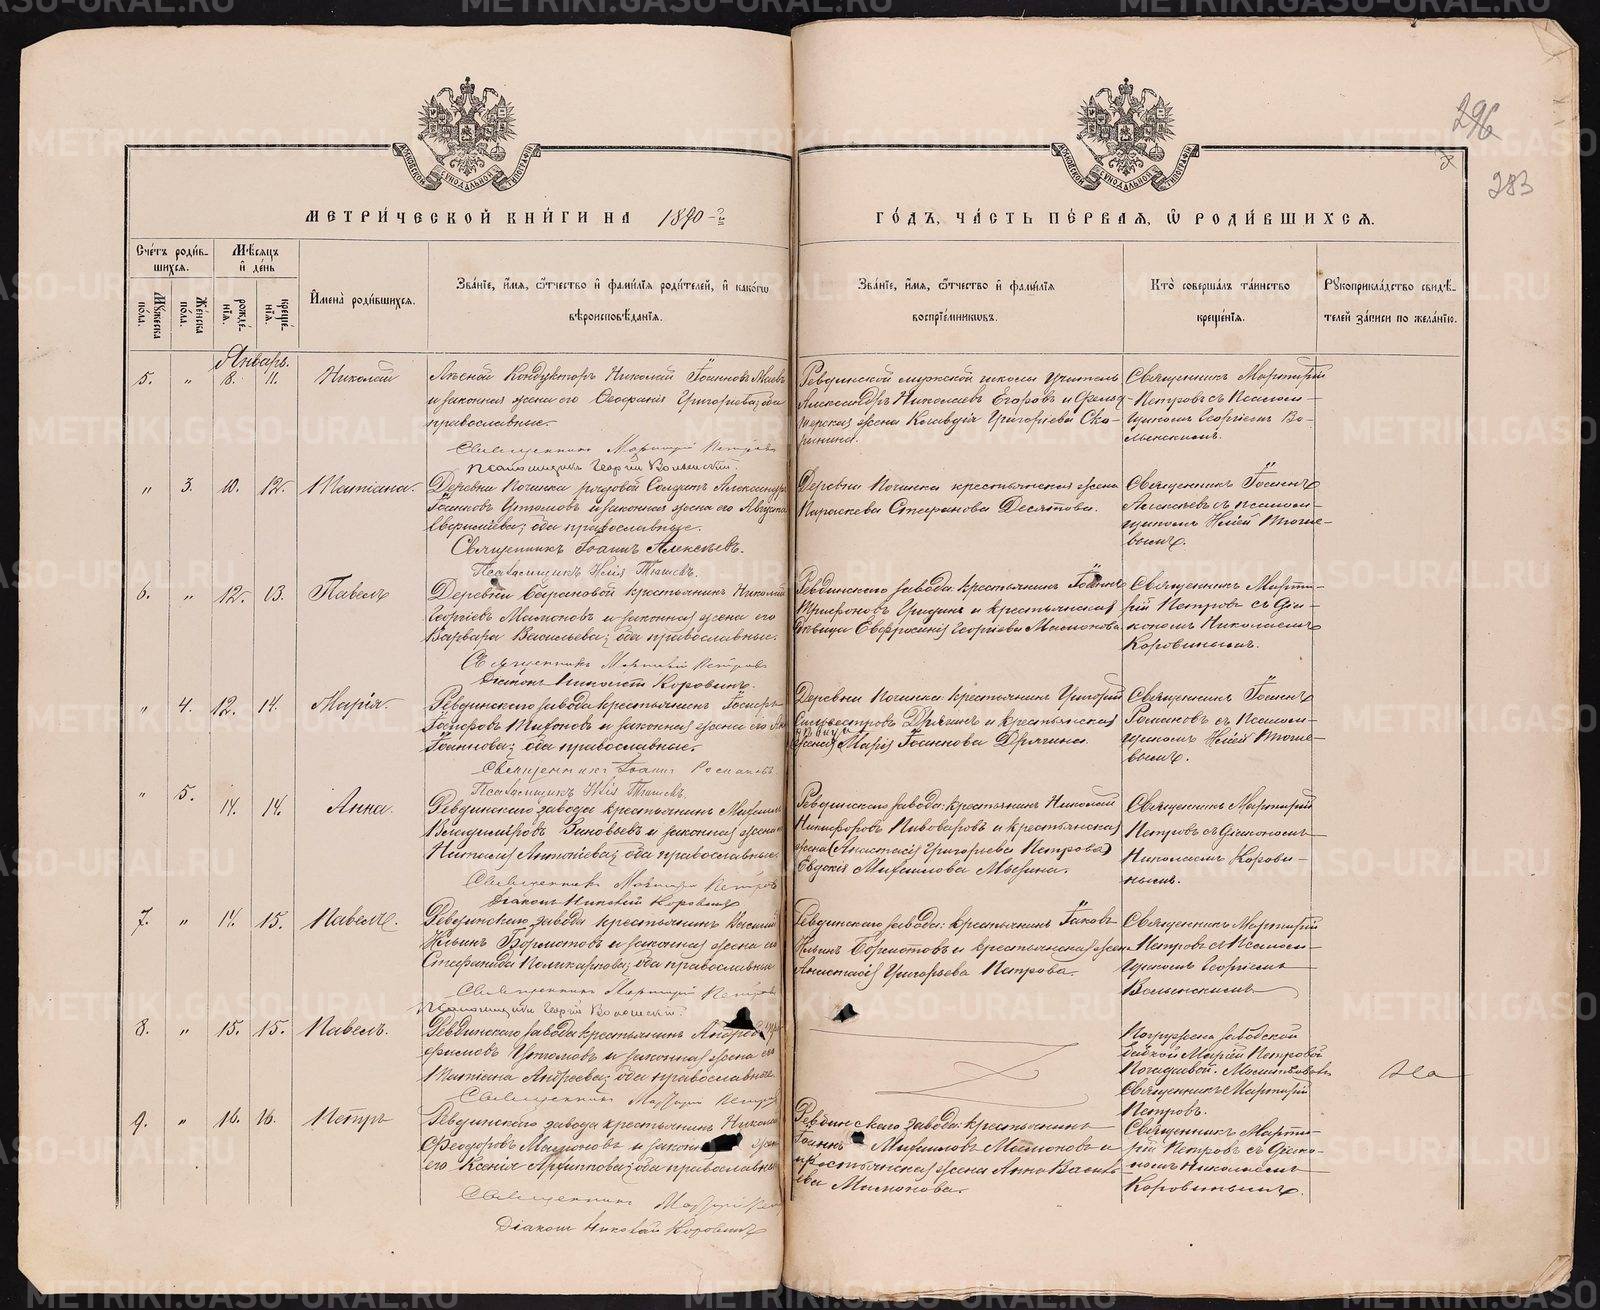 296
283
МЕТРИ́ЧЕСКОЙ КНИ́ГИ НА 1890-й
ГО́ДЪ, ЧА́СТЬ ПЕ́РВАЯ, Ѡ РОДИ́ВШИХСЯ.
Сче́тъ роди́в-
шихся.
Мѣ́сяцъ
и҆ де́нь
Му́жеска
по́ла.
Же́нска
по́ла.
рожде́-
нія.
креще́-
нія.
И҆мена̀ роди́вшихся.
Зва́ніе, и҆́мя, ѻ҆́тчество и҆ фами́лія роди́телей, и҆ како́гѡ
вѣроисповѣ́данія.
Зва́ніе, и҆́мя, ѻ҆́тчество и҆ фами́лія
воспріе́мниковъ.
Кто̀ соверша́лъ та́инство
креще́нія.
Рꙋкоприкла́дство свидѣ́-
телей за́писи по жела́нію.
Январь.
5. „ 8. 11. Николай
Лѣсной Кондукторъ Николай Іоанновъ
и законная жена его Григорьева; оба
православные.
Священникъ Мартирій Петровъ
Псаломщикъ Георгій Волынскій.
Ревдинской мужской школы Учитель
Александръ Николаевъ Егоровъ и Фельд-
шерская жена Клавдія Григорьева
Священникъ Мартирій
Петровъ съ Псалом-
щикомъ Георгіемъ Во-
лынскимъ.
„ 3. 10. 12. Татіана.
Деревни Починка рядовой Солдатъ Александръ
Іоанновъ Утюмовъ и законная жена его Августа
оба православные.
Священникъ Іоаннъ Алексѣевъ.
Псаломщикъ Илія
Деревни Починка крестьянская жена
Параскева Стефанова Десятова.
Священникъ Іоаннъ
Алексѣевъ съ псалом-
щикомъ Иліей
6. „ 12. 13. Павелъ
Деревни Барановой крестьянинъ Николай
Георгіевъ Мамоновъ и законная жена его
Варвара Васильева; оба православные.
Священникъ Мартирій Петровъ
Діаконъ Николай Коровинъ.
Ревдинского завода: крестьянинъ Іоаннъ
Трифоновъ и крестьянская
дѣвица Евфросинія Георгіева Мамонова.
Священникъ Марти-
рій Петровъ съ Діа-
кономъ Николаемъ
Коровинымъ.
„ 4. 12. 14. Марія.
Ревдинского завода крестьянинъ
Тихоновъ и законная жена его
Іоаннова; оба православные.
Священникъ Іоаннъ Романовъ
Псаломщикъ Илія
Деревни Починка крестьянинъ Григорій
Сильвестровъ Дрягинъ и крестьянская
дѣвица Марія Іоаннова Дрягина.
Священникъ Іоаннъ
Романовъ съ Псалом-
щикомъ Иліей
„ 5. 14. 14. Анна.
Ревдинского завода крестьянинъ Михаилъ
Владиміровъ Зиновьевъ и законная жена
Наталія Антоніева; оба православные.
Священникъ Мартирій Петровъ
Діаконъ Николай Коровинъ
Ревдинского завода: крестьянинъ Николай
Никифоровъ Пивоваровъ и крестьянская
жена (Анастасія Григорьева Петрова)
Евдокія Михаилова
Священникъ Мартирій
Петровъ съ Діакономъ
Николаемъ Корови-
нымъ.
7. „ 14. 15. Павелъ.
Ревдинского завода крестьянинъ Василій
Ильинъ Бормотовъ и законная жена его
Стефанида Поликарпова; оба православные
Священникъ Мартирій Петровъ
Псаломщикъ Георгій Волынскій.
Ревдинского завода: крестьянинъ Іаковъ
Ильинъ Бормотовъ и крестьянская жена
Анастасія Григорьева Петрова.
Священникъ Мартирій
Петровъ съ Псалом-
щикомъ Георгіемъ
Волынскимъ
8. „ 15. 15. Павелъ.
Ревдинского завода крестьянинъ Андрей
Утюмовъ и законная жена его
Татіана Андреева; оба православные
Священникъ Мартирій Петровъ
Погружена заводской
бабкой Маріей Петровой
Священникъ Мартирій
Петровъ.
9. „ 16. 16. Петръ
Ревдинского завода крестьянинъ Николай
Феодоровъ Мамоновъ и законная жена
его Ксенія Архиппова; оба православные
Священникъ Мартирій
Діаконъ Николай Коровинъ
Ревдинского завода: крестьянинъ
Іоаннъ Михаиловъ Мамоновъ и
крестьянская жена Анна Василь-
ева Мамонова.
Священникъ Марти-
рій Петровъ съ Діако-
номъ Николаемъ
Коровинымъ.
METRIKI.GASO-URAL.RU